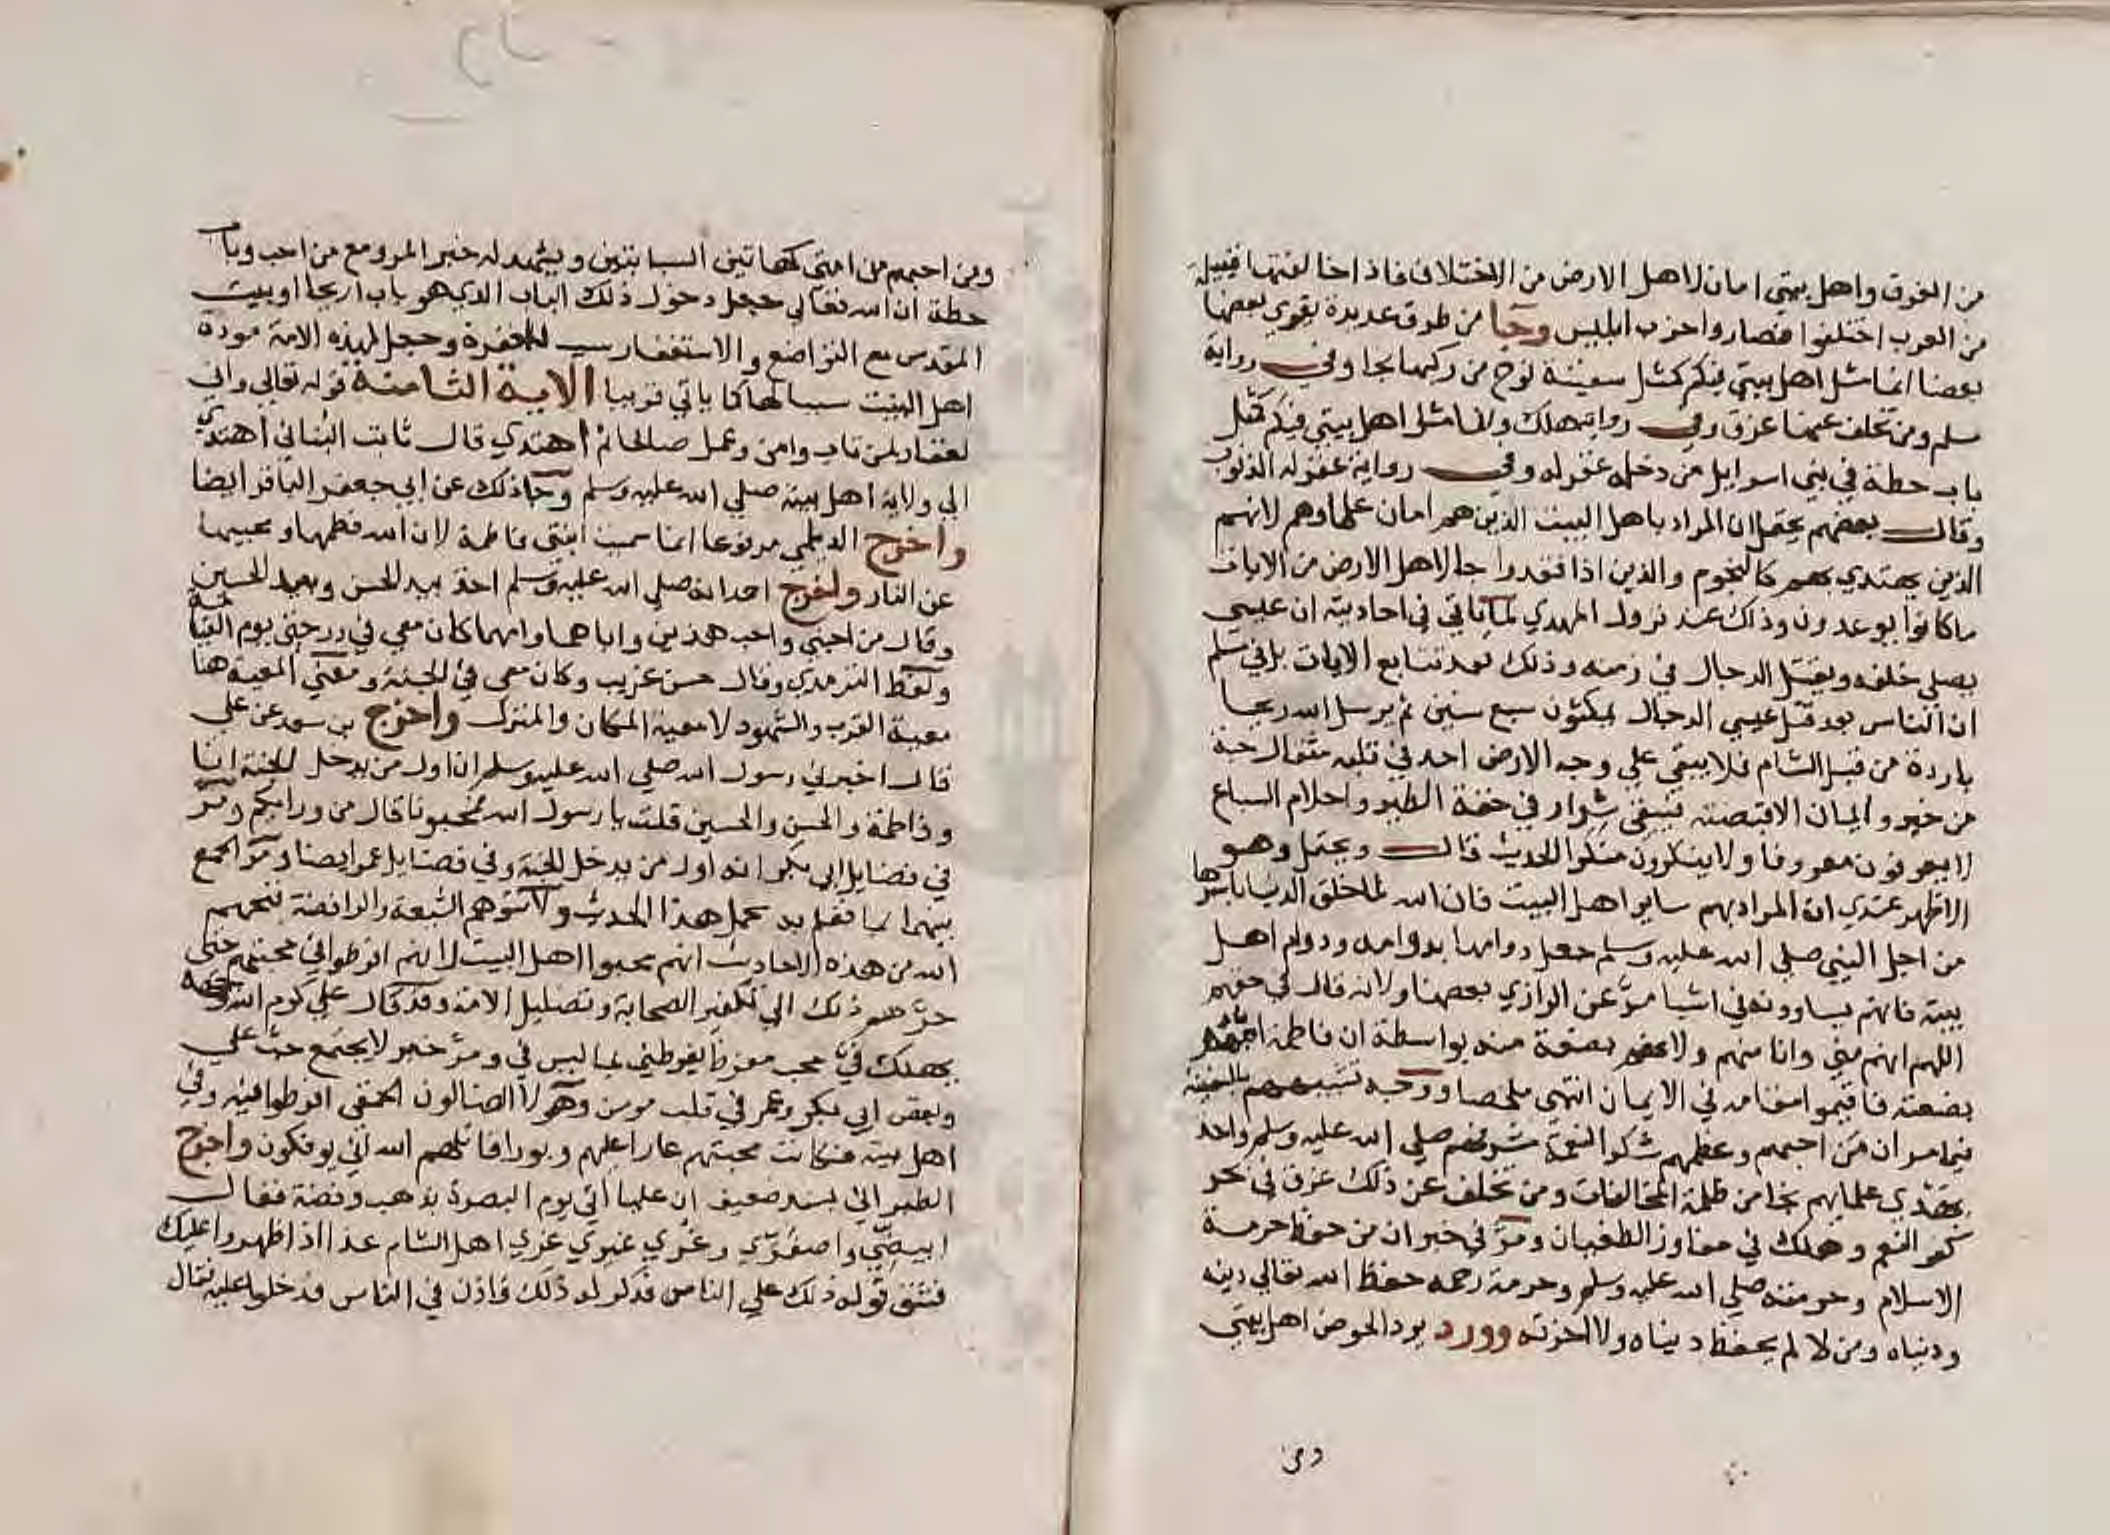 من الغرق واهل بيتي امان لاهل الارض من الاختلاف فاذا خالفتها قبيلة
من العرب اختلفوا فصاروا حزب ابليس وجا من طرق عديدة يقوي بعضها
بعضا انما مثل اهل بيتي فيكم كمثل سفينة نوح من ركبها نجا وفي رواية
مسلم ومن تخلف عنها غرق وفي رواية هلك وانما مثل اهل بيتي فيكم كمثل
باب حطة في بني اسرايل من دخله غفر له وفي رواية غفر له الذنوب
وقال بعضهم يحتمل ان المراد باهل البيت الذين هم امان علماوهم لانهم
الذين يهتدي بهم كالنجوم والذين اذا فقدوا جا لاهل الارض من الايات
ما كانوا يوعدون وذلك عند نزول المهدي لما ياتي في احاديثه ان عيسي
يصلي خلفه ويقتل الدجال في زمنه وذلك بعد تتابع الايات بل في مسلم
ان الناس بعد قتل عيسي الدجال يمكثون سبع سنين ثم يرسل الله ريحا
باردة من قبل الشام فلا يبقي علي وجه الارض احد في قلبه مثقال حبة
من خير او ايمان الا قبضته فيبقي شرار في خفة الطير واحلام السباع
لا يعرفون معروفا ولا ينكرون منكرا الحديث قال ويحتمل وهو
الاظهر عندي ان المراد بهم ساير اهل البيت فان الله لما خلق الدنيا باسرها
من اجل النبي صلي الله عليه وسلم جعل دوامها بدوامه ودوام اهل
بيته فانهم يساوونه في اشيا مر عن الرازي بعضها ولانه قال في حقهم
اللهم انهم مني وانا منهم ولانهم بضعة منه بواسطة ان فاطمة امهم
بضعته فاقيموا مقامه في الايمان انتهي ملخصا ووجه تشبيههم بالسفينة
فيما مر ان من احبهم وعظمهم شكرا لنعمة مشرفهم صلي الله عليه وسلم واخذ
بهدي علمايهم نجا من ظلمة المخالفات ومن تخلف عن ذلك غرق في بحر
كفر النعم وهلك في مفاوز الطغيان ومر في خبر ان من حفظ حرمة
الاسلام وحرمته صلي الله عليه وسلم وحرمة رحمه حفظ الله تعالي دينه
ودنياه ومن لا لم يحفظ دنياه ولا اخرته وورد يرد الحوض اهل بيتي
ومن
ومن احبهم من امتي كهاتين السبابتين ويشهد له خبر المرو مع من احب وباب
حطة ان الله تعالي جعل دخول ذلك الباب الذي هو باب اريحا او بيت
المقدس مع التواضع والاستغفار سببا للمغفرة وجعل لهذه الامة مودة
اهل البيت سببا لها كما ياتي قريبا الاية الثامنة قوله تعالي واني
لغفار لمن تاب وامن وعمل صالحا ثم اهتدي قال ثابت البناني اهتدي
الي ولاية اهل بيته صلي الله عليه وسلم وجا ذلك عن ابي جعفر الباقر ايضا
واخرج الديلمي مرفوعا انما سميت ابنتي فاطمة لان الله فطمها ومحبيها
عن النار واخرج احمد انه صلي الله عليه وسلم اخذ بيد الحسن وبيد الحسين
وقال من احبني واحب هذين واباهما وامهما كان معي في درجتي يوم القيامة
ولفظ الترمذي وقال حسن غريب وكان معي في الجنة ومعني المعية هنا
معية القرب والشهود لا معية المكان والمنزل واخرج بن سعد عن علي
قال اخبرني رسول الله صلي الله عليه وسلم ان اول من يدخل الجنة انا
وفاطمة والحسن والحسين قلت يا رسول الله فمحبونا قال من ورايكم ومر
في فضايل ابي بكر انه اول من يدخل الجنة وفي فضايل عمر ايضا ومر الجمع
بينهما بما يعلم به محمل هذا الحديث ولا تتوهم الشيعة والرافضة قبحهم
الله من هذه الاحاديث انهم محبوا اهل البيت لانهم افرطوا في محبتهم حتي
جرهم ذلك الي تكفير الصحابة وتضليل الامة وقد قال علي كرم الله وجهه
يهلك في محب مفرط يفرطني بما ليس في ومر خبر لا يجتمع حب علي
وبغض ابي بكر وعمر في قلب مومن وهولا الضالون الحمقي افرطوا فيه وفي
اهل بيته فكانت محبتهم عارا عليهم وبورا قاتلهم الله اني يوفكون واخرج
الطبراني بسند ضعيف ان عليا اتي يوم البصرة بذهب وفضة فقال
ابيضي واصفري وغري غيري غري اهل الشام غدا اذا ظهروا عليك
فشق قوله ذلك علي الناس فذكر له ذلك فاذن في الناس فدخلوا عليه فقال